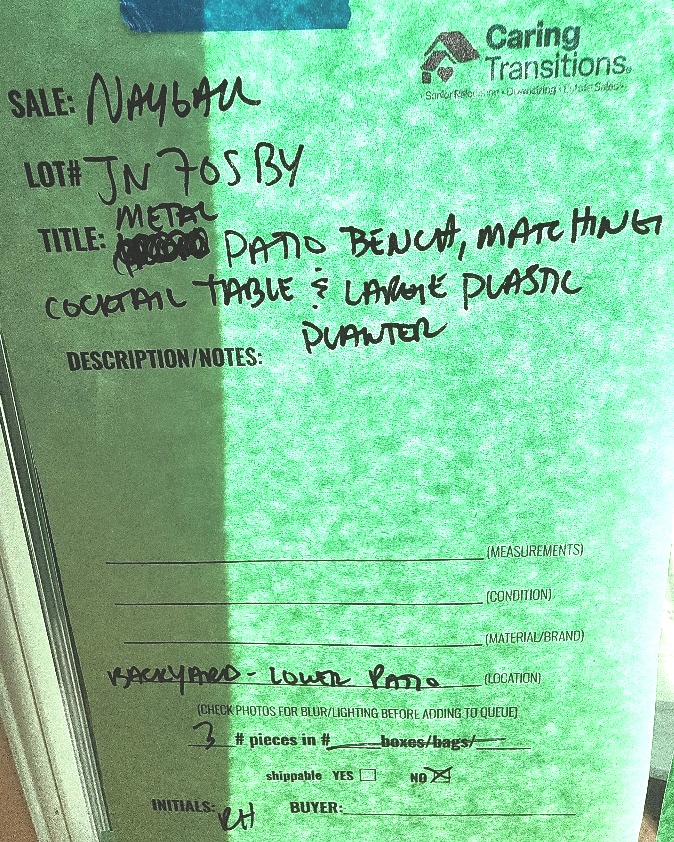 Caring
Transitions
SALE: NAYGALL
LOT# JN 705 BY
METAL
TITLE: PATIO BENCH, MATCHING
COCKTAIL TABLE & LARGE PLASTIC
PLANTER
DESCRIPTION/NOTES:
(MEASUREMENTS)
(CONDITION)
(MATERIAL/BRAND)
BACKYARD - LOWER PATIO (LOCATION)
(CHECK PHOTOS FOR BLUR/LIGHTING BEFORE ADDING TO QUEUE)
3 # pieces in # boxes/bags/
shippable YES NO
INITIALS: RH BUYER: